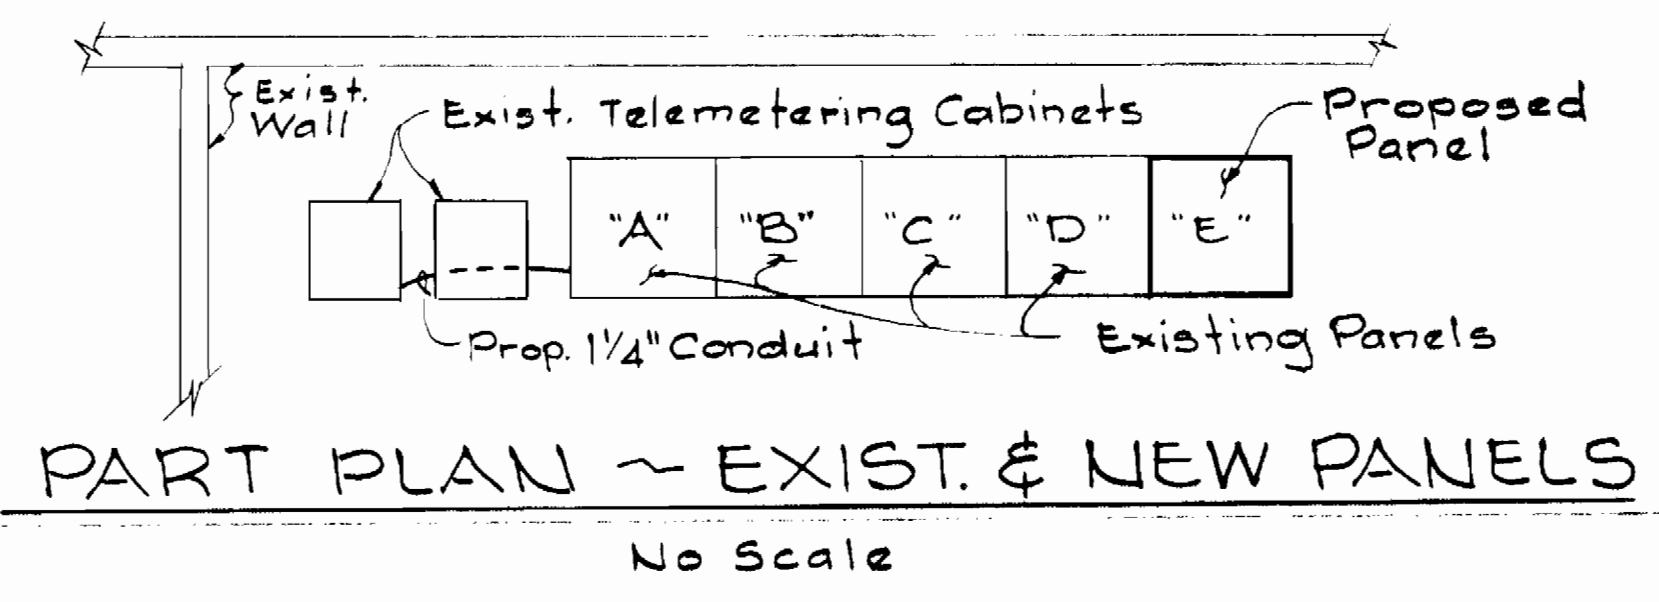 Exist.
Wall
Exist. Telemetering Cabinets
Proposed
Panel
"A" "B" "C" "D" "E"
Prop. 1¼" Conduit
Existing Panels
PART PLAN ~ EXIST. & NEW PANELS
No Scale